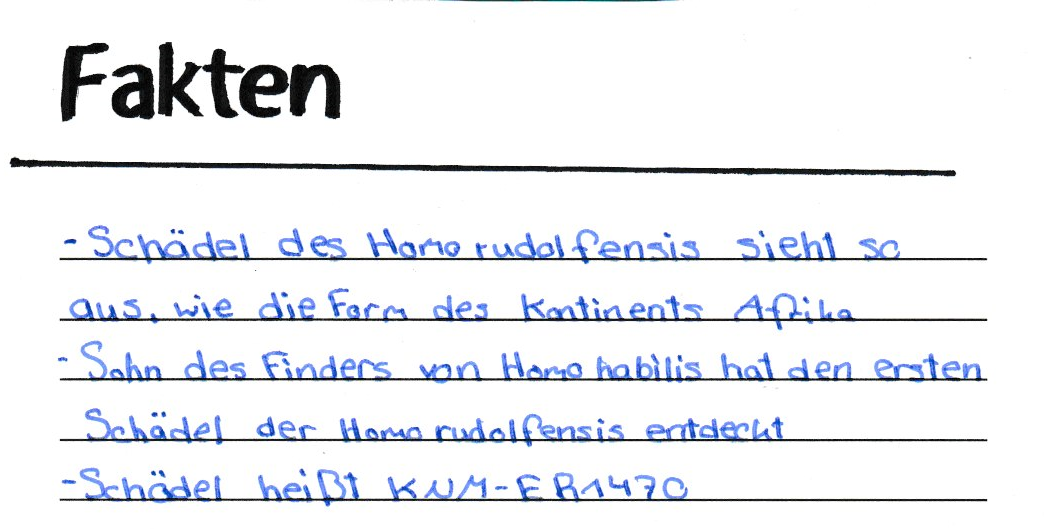 Fakten
- Schädel des Homo rudolfensis sieht so
aus, wie die Form des Kontinents Afrika
- Sohn des Finders von Homo habilis hat den ersten
Schädel der Homo rudolfensis entdeckt
- Schädel heißt KNM-ER1470